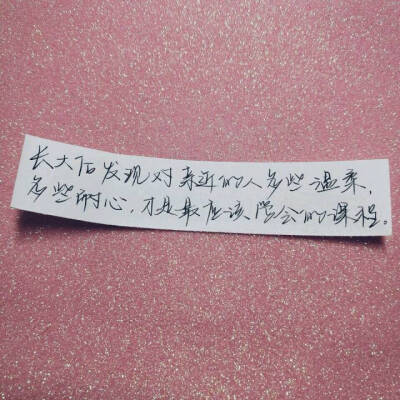 长大后发现对亲近的人多些温柔，
多些耐心，才是最应该学会的课程。